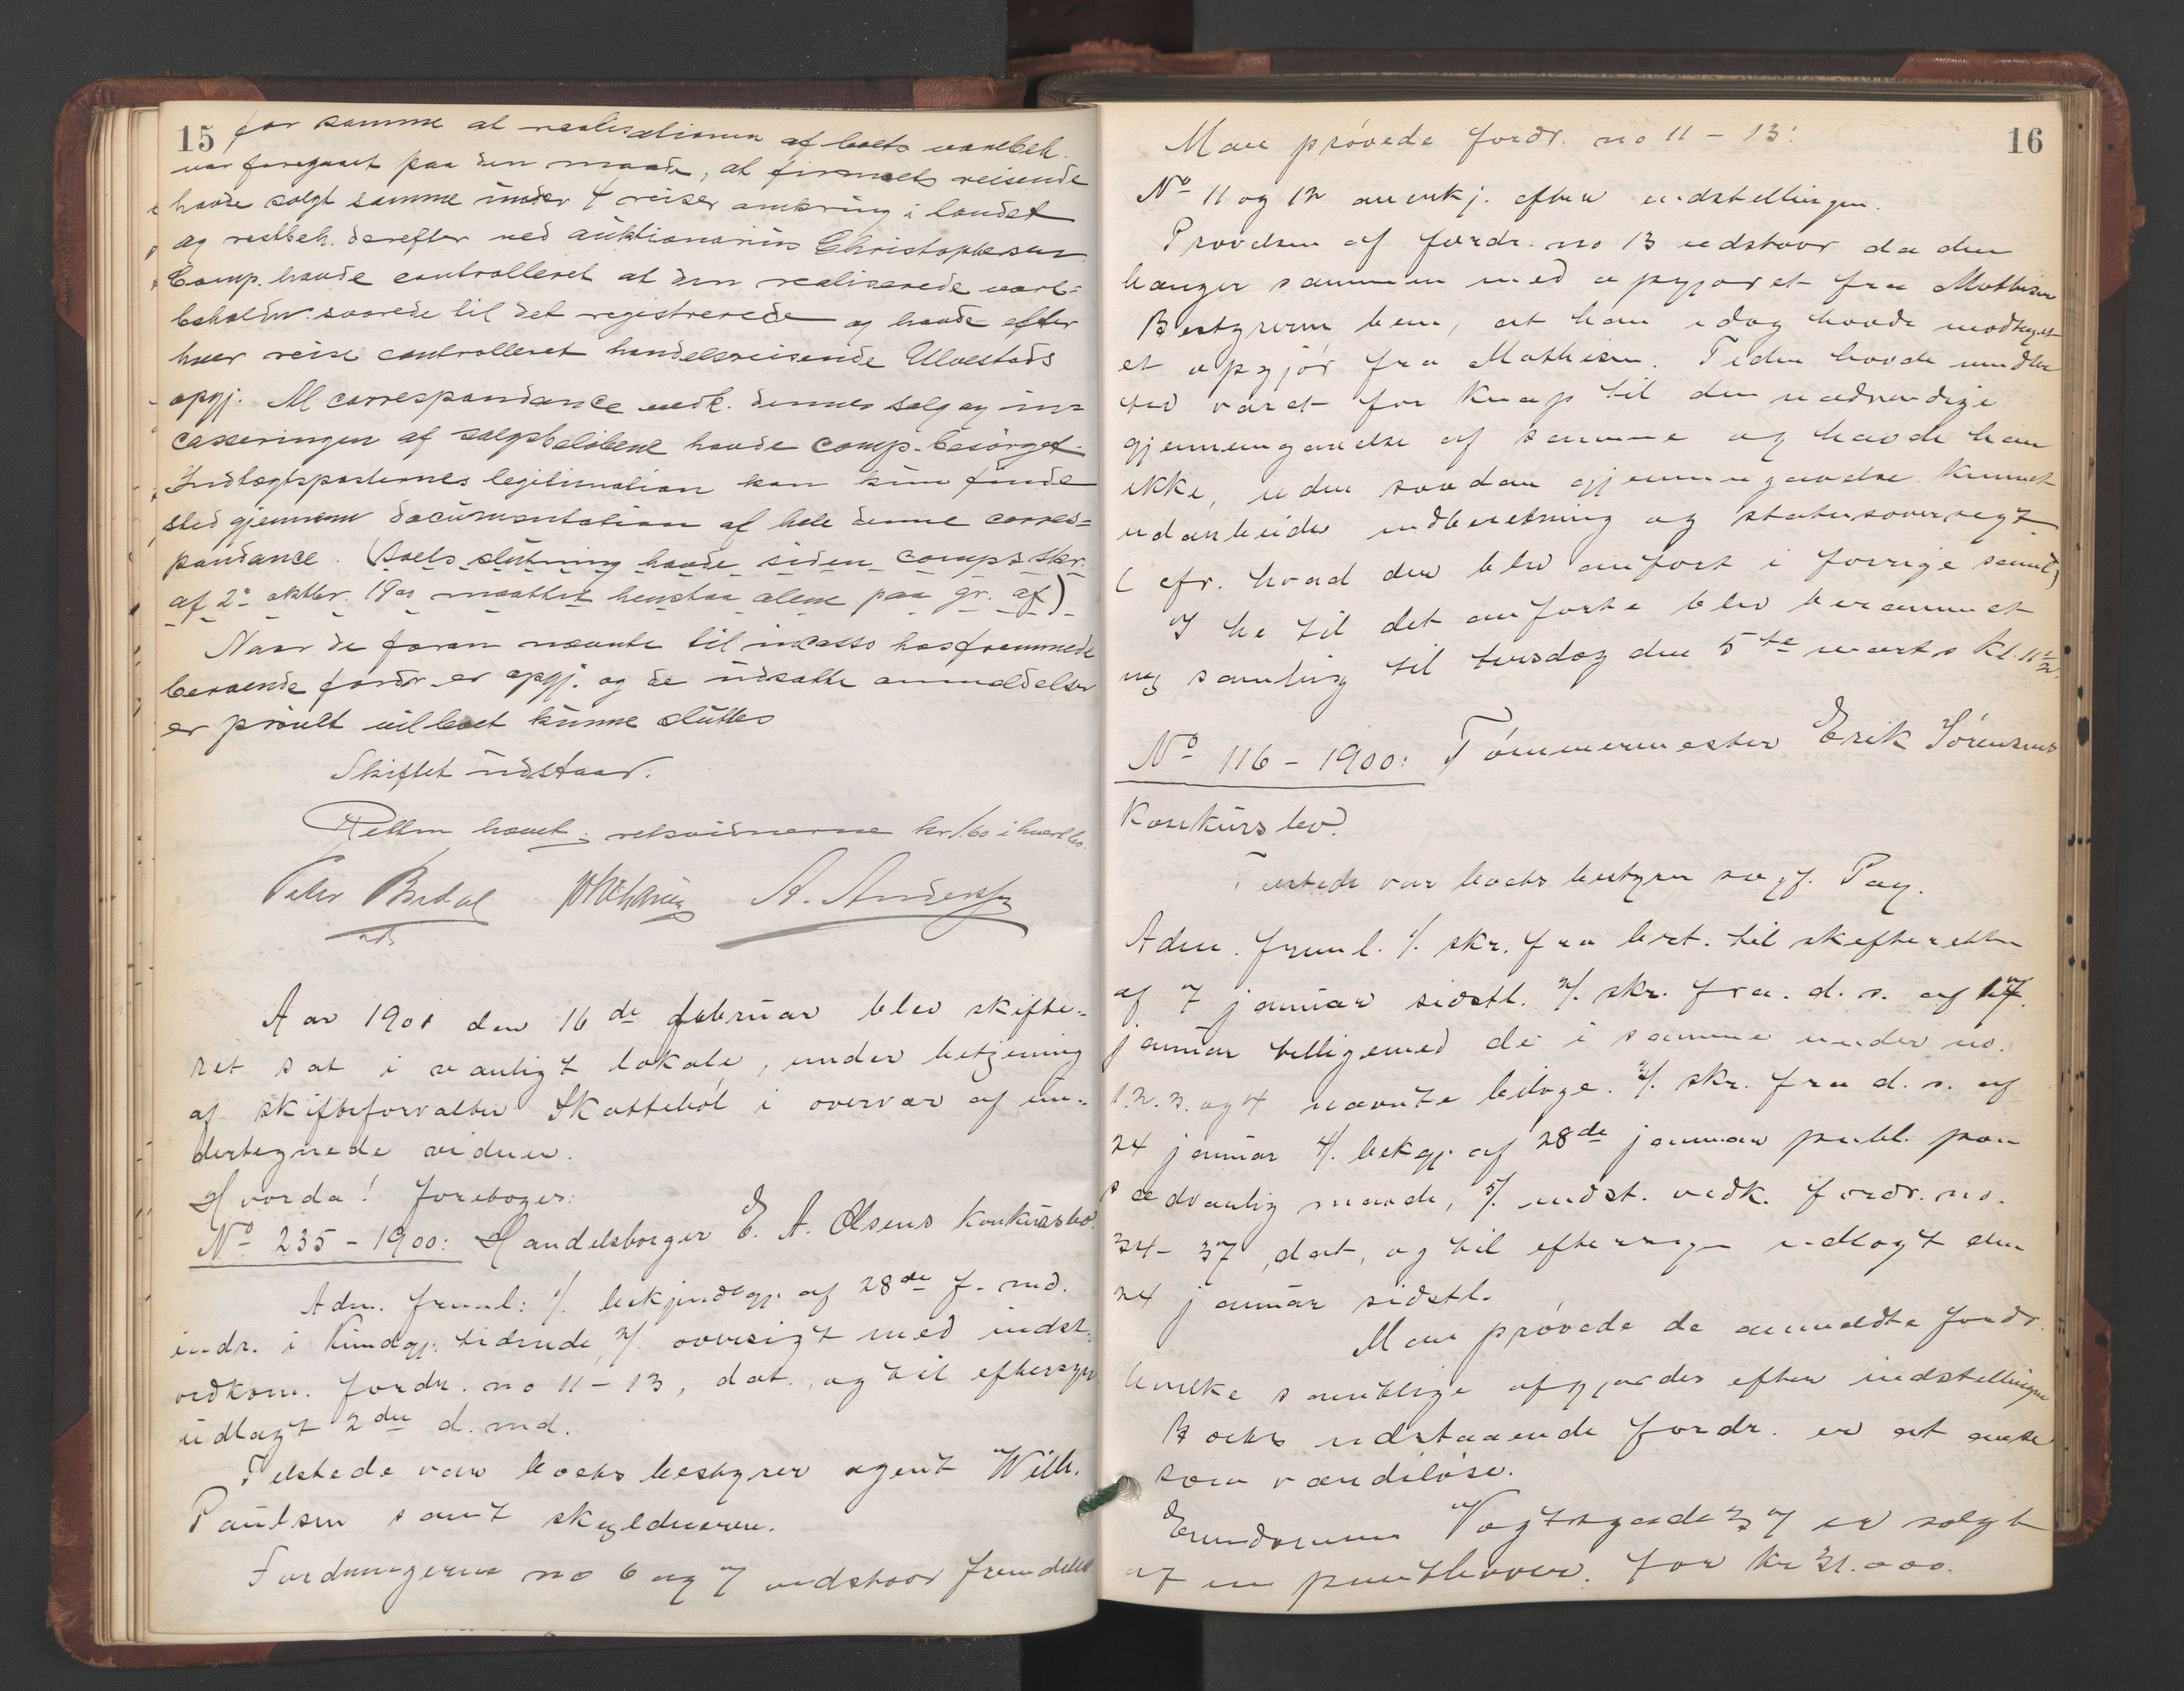 15
for samme at realisationen af boets varebeh.
var foregaaet paa den maade, at firmaets reisende
havde solgt samme under 4 reiser omkring i landet
og restbeh. derefter ved auktionarius Christophersen
Comp. havde controlleret at den realiserede vare-
beholdn. svarede til det registrerede og havde efter
hver reise controlleret handelsreisende Ulvestads
opgj. Al correspondance vedk. dennes salg og in-
casseringen af salgsbeløbene havde comp. besørget
Indtægtsposternes legitimation kan kun finde
sted gjennem documentation af hele denne corres-
pondance. (Boets slutning havde siden comps skr.
af 2. oktbr. 1900 maattet henstaa alene paa gr. af)
Naar de foran nævnte til incasso hos fremmede
beroende fordr. er opgj. og de udsatte anmeldelser
er prøvet vil boet kunne sluttes
Skiftet udstaar.
Retten hævet; retsvidnerne kr 1.60 i hvert bo.
Peter Bredal A. Anderssen
Aar 1901 den 16de februar blev skifte-
ret sat i vanligt lokale, under betjening
af skifteforvalter Skattebøl i overvær af un-
dertegnede vidner.
Hvorda! foretoges:
No 235 - 1900: Handelsborger E. A. Olsens konkursbo.
Adm. freml: 1/. bekjendtgj. af 28de f. md.
indr. i Kundgj. tidende, 2/. oversigt med indst.
vedkom. fordr. no 11 - 13, dat. og til eftersyn
udlagt 2den d. md.
Tilstede var boets bestyrer agent Wilh.
Paulsen samt skyldneren.
Fordringerne no 6 og 7 udstaar fremdeles.
16
Man prøvede fordr. no 11 - 13:
No 11 og 12 anerkj. efter indstillingen.
Prøvelsen af fordr. no 13 udstaar da den
hænger sammen med opgjøret fra Mathisen
Bestyreren bem, at han idag havde modtaget
et opgjør fra Mathisen. Tiden havde imidler-
tid været for knap til den nødvendige
gjennemgaaelse af samme og havde han
ikke, uden saadan gjennemgaaelse kunnet
udarbeide indberetning og statusoversigt
(cfr. hvad der blev anført i forrige samml.)
I he til det anførte blev berammet
ny samling til tirsdag den 5te marts kl. 11 1/2.
No 116 - 1900: Tømmermester Erik Sørensens
konkursbo.
Tilstede var boets bestyrer sagf. Pay.
Adm. freml. 1/. skr. fra best. til skifteretten
af 7 januar sidstl. 2/. skr. fra. d. s. af 17.
januar tilligemed de i samme under no.
1. 2. 3. og 4 nævnte bilage. 3/. skr. fra d. s. af
24 januar 4/. bekgj. af 28de januar publ. paa
sædvanlig maade, 5/. indst. vedk. fordr. no.
34 - 37, dat, og til eftersyn udlagt den
24 januar sidstl.
Man prøvede de anmeldte fordr.
hvilke samtlige afgjordes efter indstillingen
Boets udstaaende fordr. er at anse
som værdiløse.
Eiendommen Vogtsgade 37 er solgt
af en panthaver. for kr 31.000.